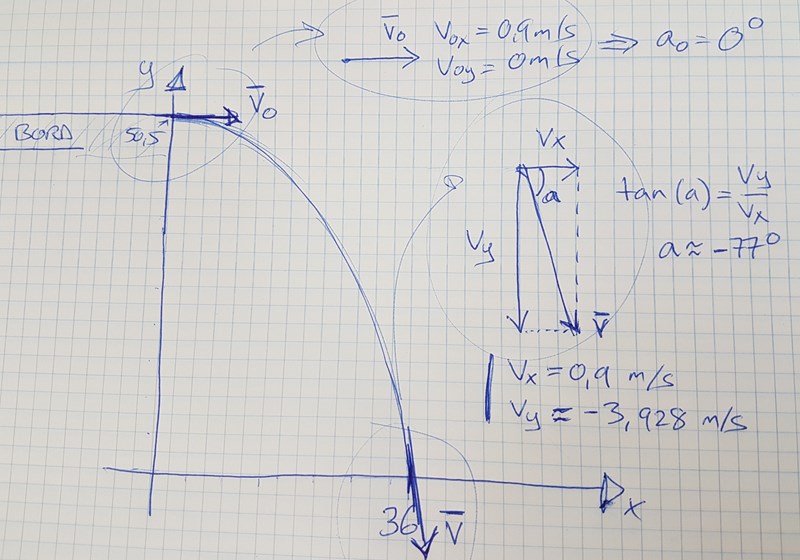 V̄₀ V₀ₓ = 0,9 m/s
V₀y = 0 m/s
⇒ a₀ = 0°
y
V̄₀
BORD
50,5
Vx
a
Vy
V̄
tan(a) = Vy/Vx
a ≈ -77°
Vx = 0,9 m/s
Vy = -3,928 m/s
x
36
V̄